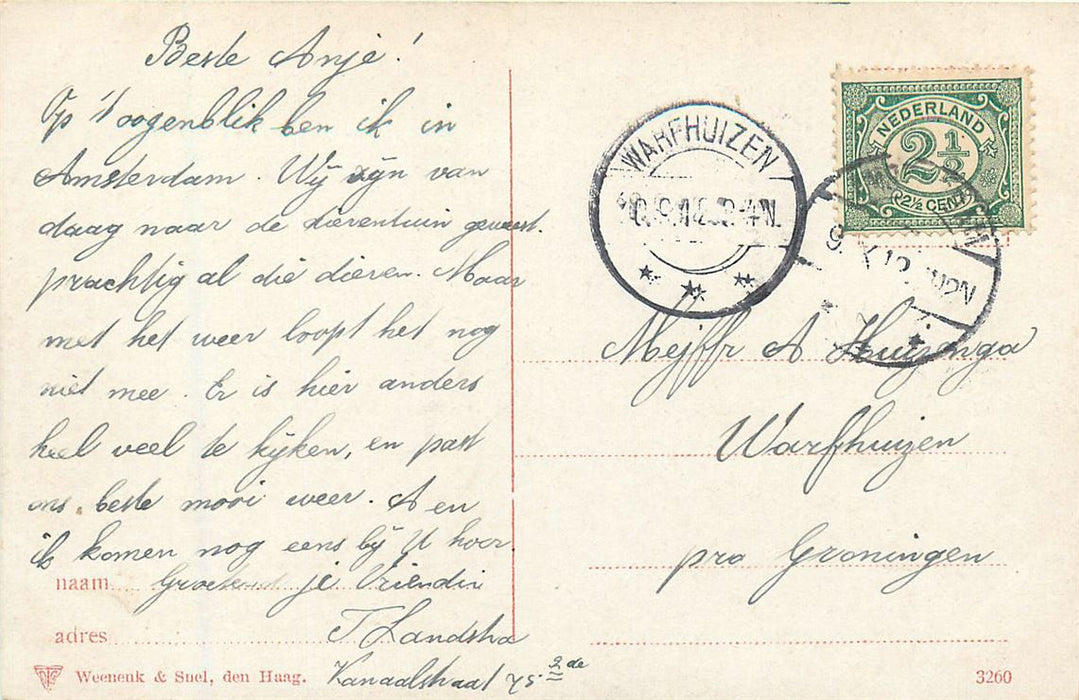 Beste Anje!
Op 't oogenblik ben ik in
Amsterdam. Wij zijn van
daag naar de dierentuin geweest.
prachtig al die dieren. Maar
met het weer loopt het nog
niet mee. Er is hier anders
heel veel te kijken, en past
ons beste mooi weer. A en
ik komen nog eens bij U hoor
naam Groetend je Vriendin
adres T Landstra
Kanaalstraat 75 2de
Weenenk & Snel, den Haag.
WARFHUIZEN
NEDERLAND
2½
2½ CENT
Mejffr A Huizenga
Warfhuizen
pro Groningen
3260